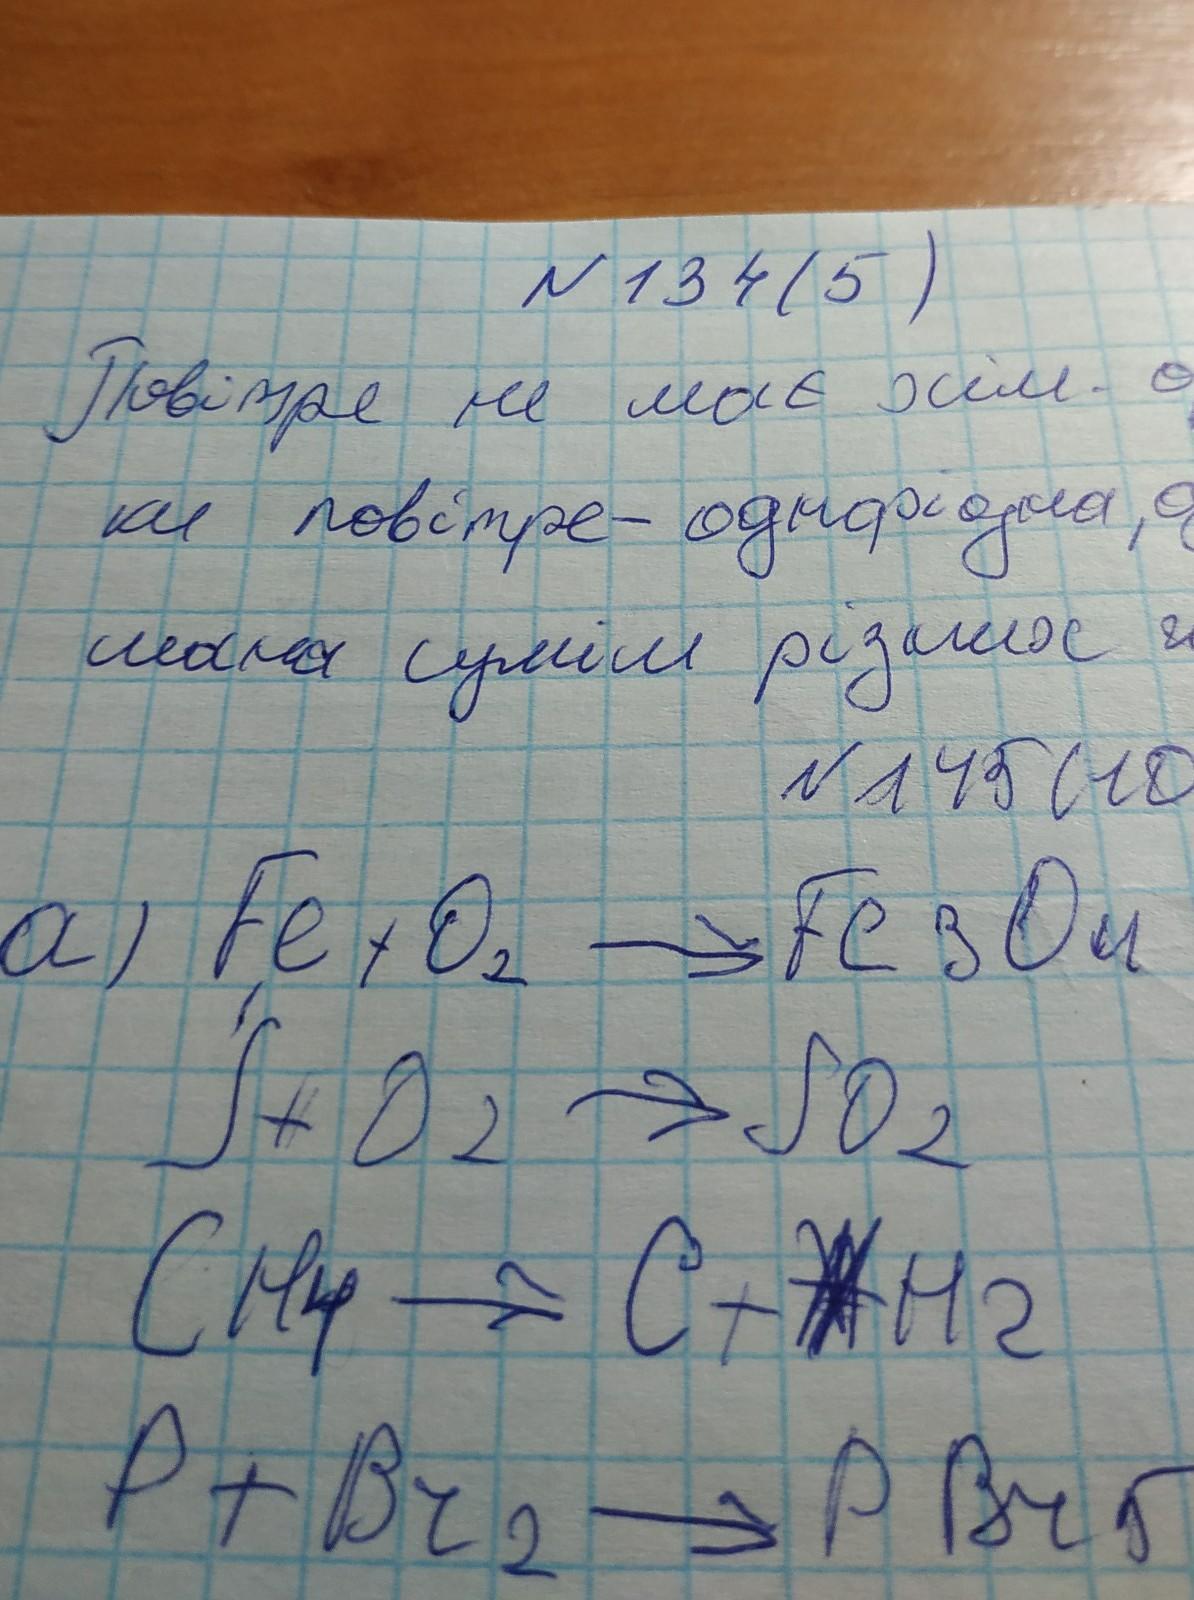 N 134(5)
Повітре не має хім.
ки повітре - однорідна,
мана суміш різних
N 145(10
а) Fe + O2 → Fe3O4
S + O2 → SO2
CH4 → C + H2
P + Br2 → PBr5